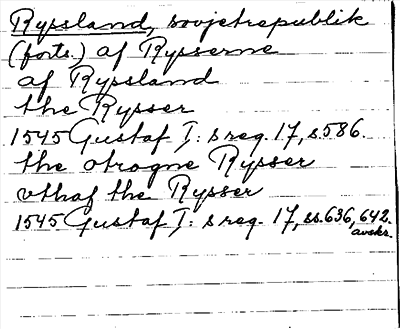 Ryssland, sovjetrepublik
(forts.) af Rysserne
af Ryssland
the Rysser
1545 Gustaf I: s reg. 17, s. 586.
the otrogne Rysser
vthaf the Rysser
1545 Gustaf I: s reg. 17, ss. 636, 642.
avskr.